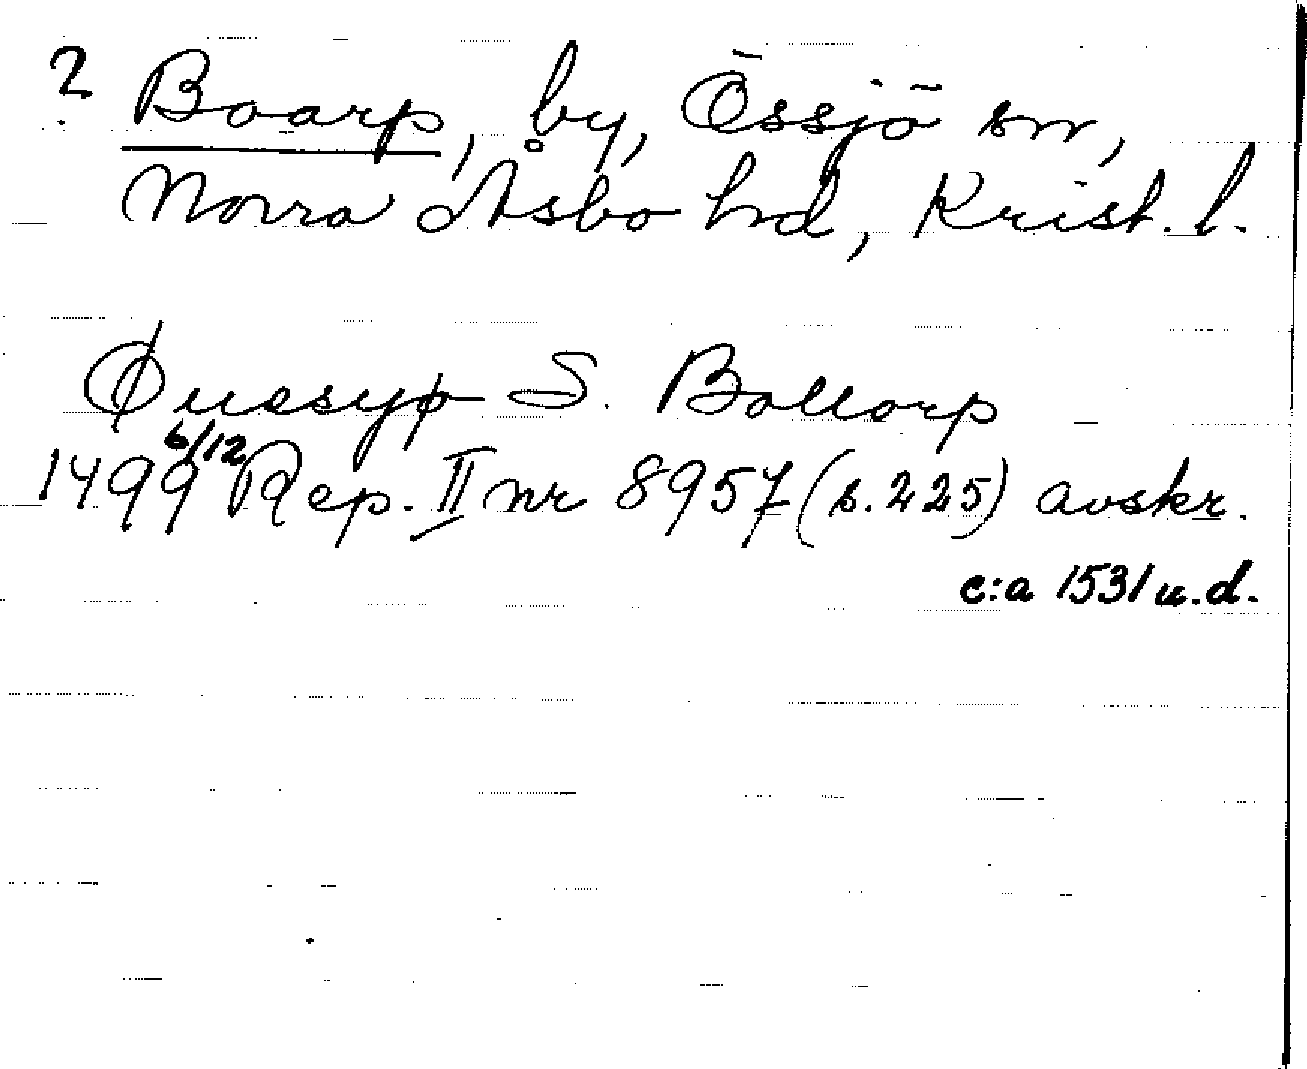 ? Boarp, by, Össjö sn,
Norra Åsbo hd, Krist. l.
Øuesyø S. Bollorp
1499 6/12 Rep. II nr 8957 (s. 225) avskr.
c:a 1531 u.d.